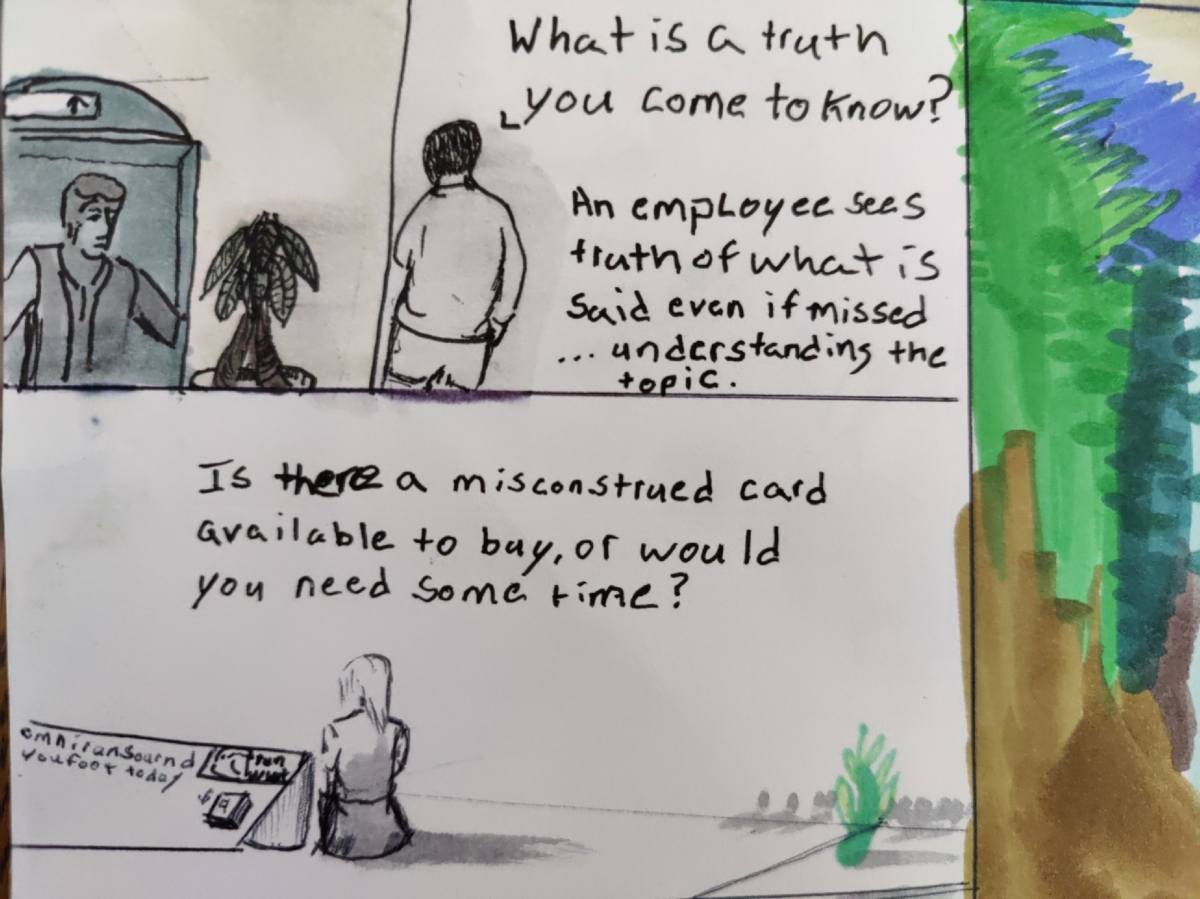 What is a truth
you come to know?
An employee sees
truth of what is
said even if missed
... understanding the
topic.
Is there a misconstrued card
available to buy, or would
you need some time?
you foot today
run